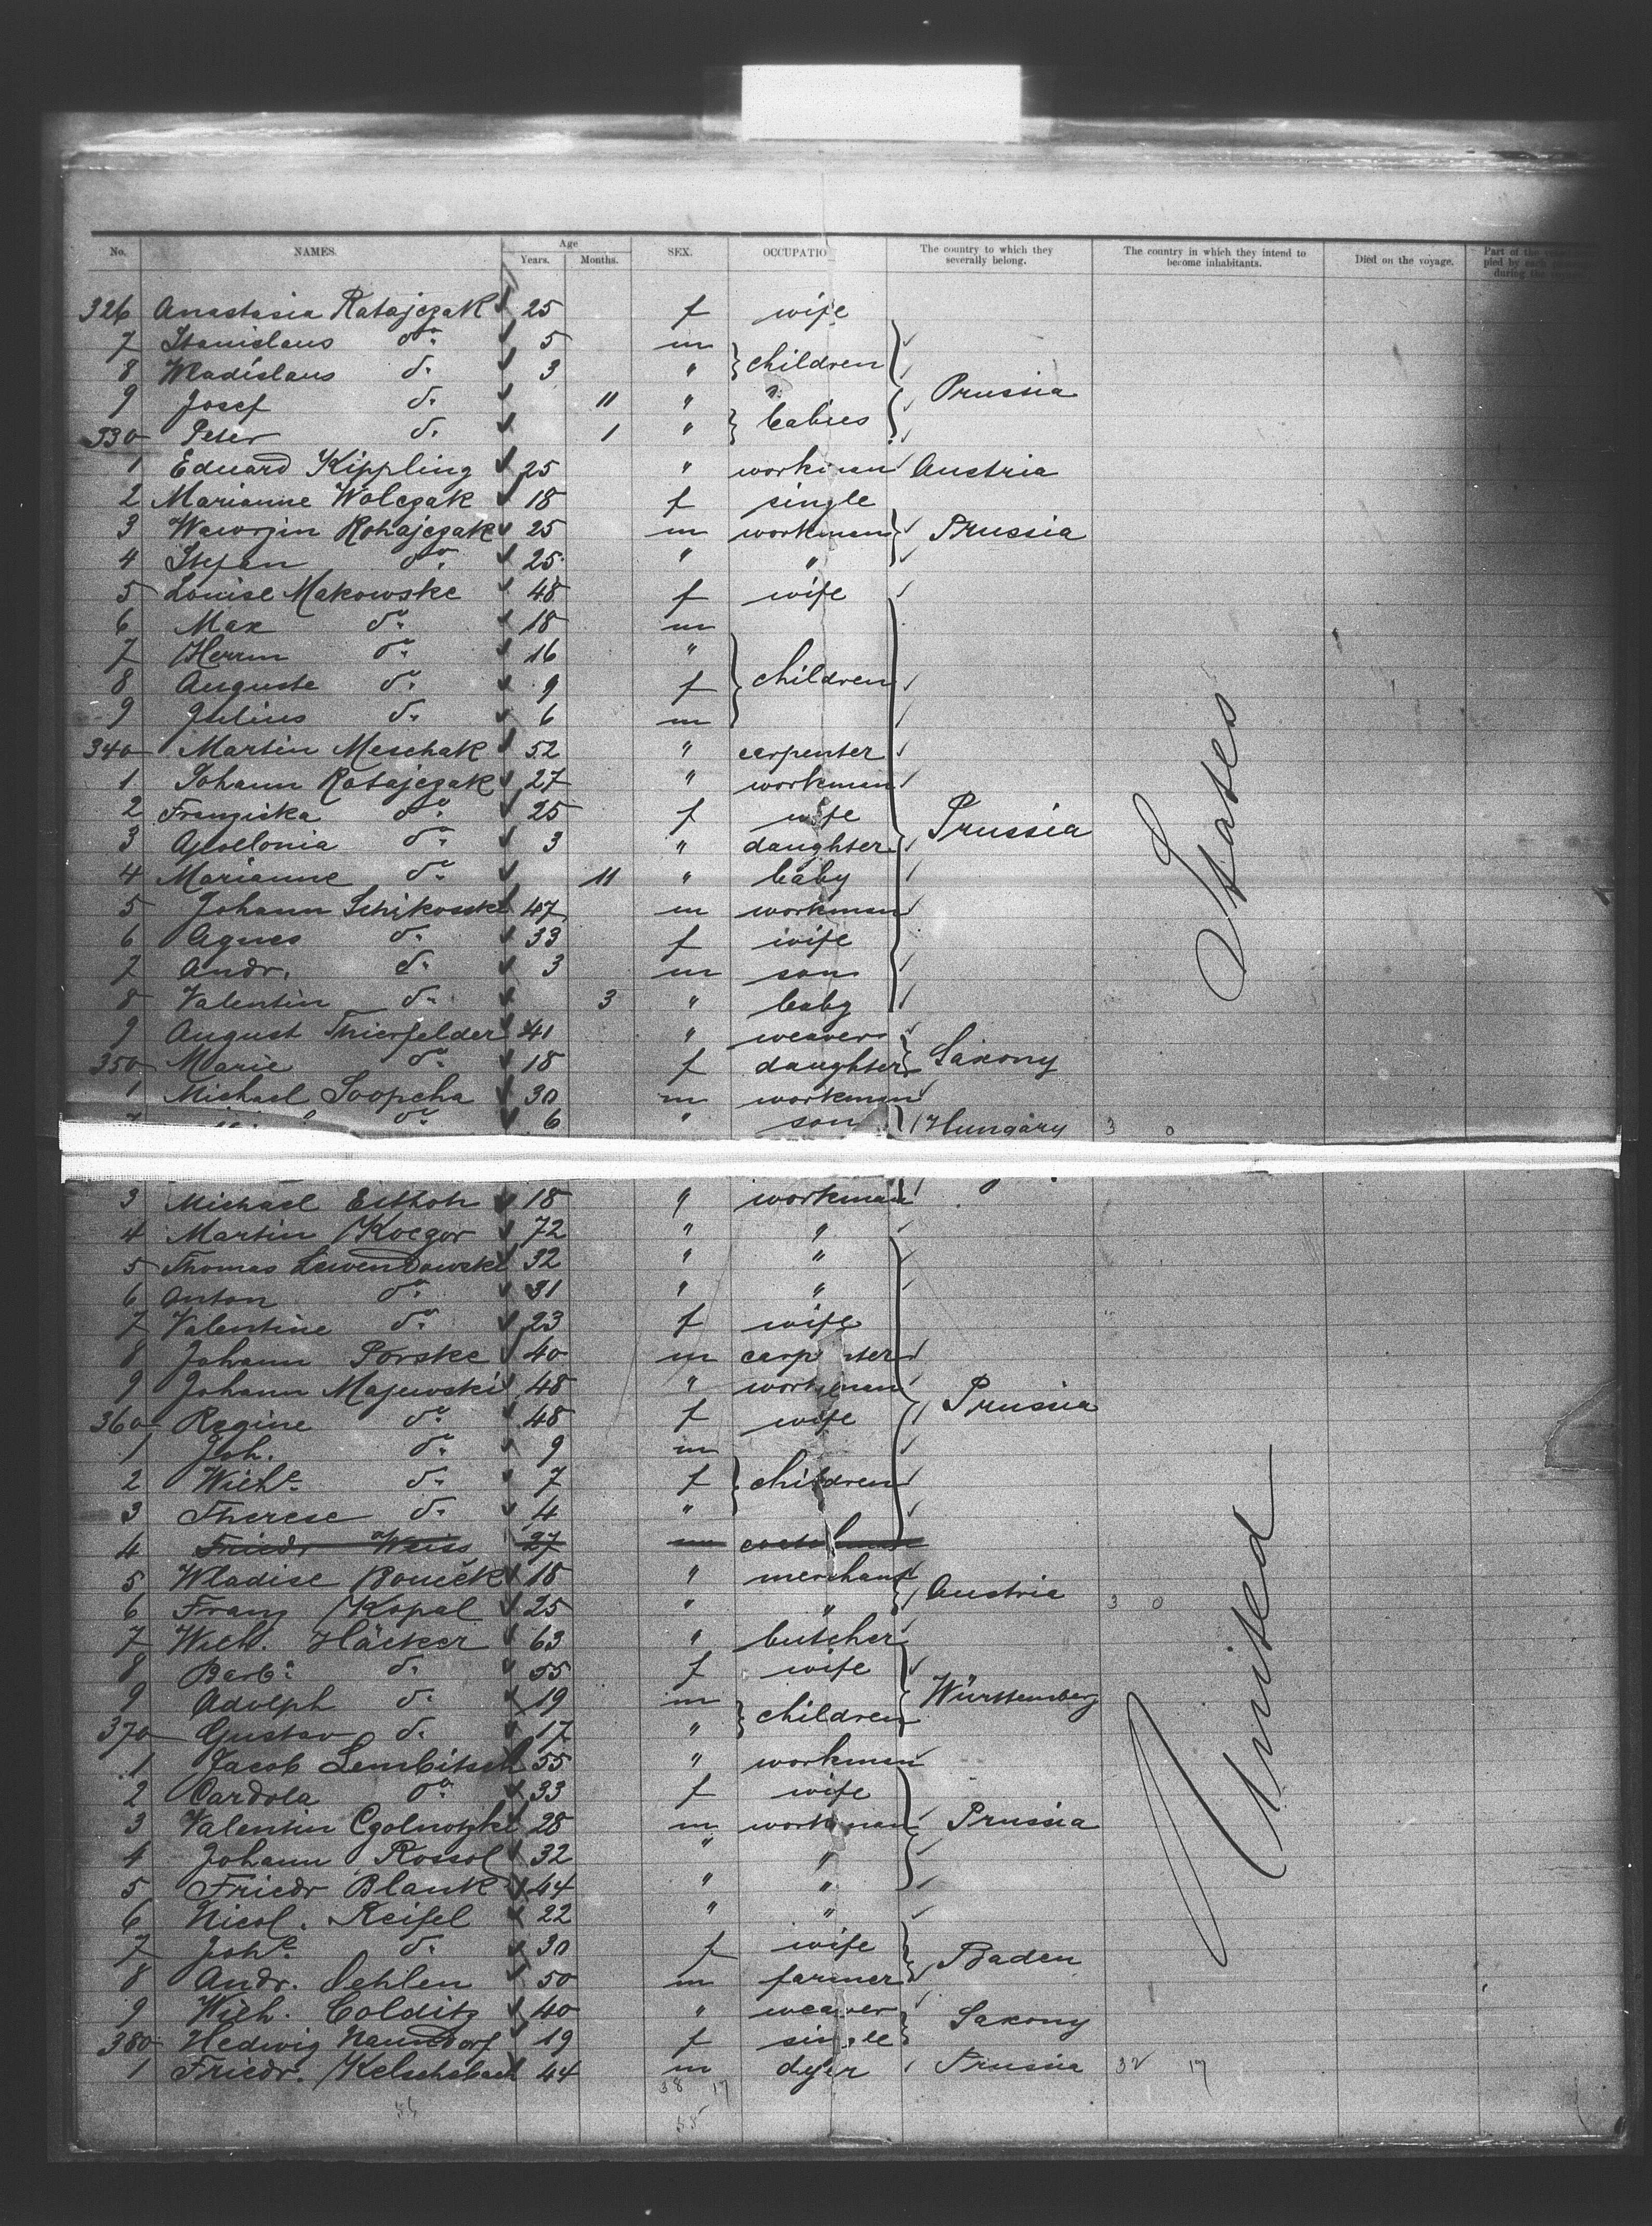 No. NAMES. Age Years. Months. SEX. OCCUPATIO The country to which they severally belong. The country in which they intend to become inhabitants. Died on the voyage. Part of the
326 Anastasia Ratajczak 25 f wife
7 Stanislaus do. 5 m children
8 Wladislaus do. 3 "
9 Josef do. 11 " " Prussia
330 Peter do. 1 " babies
1 Eduard Kippling 25 " workman Austria
2 Marianne Wolczak 18 f single
3 Wawrzin Rohajczak 25 m workman Prussia
4 Stefan do. 25 " "
5 Louise Makowske 48 f wife
6 Max do. 18 m
7 Herrm do. 16 "
8 Auguste do. 9 f children
9 Julius do. 6 m
340 Martin Meschak 52 " carpenter
1 Johann Ratajczak 27 " workman
2 Franziska do. 25 f wife Prussia
3 Apollonia do. 3 " daughter
4 Marianne do. 11 " baby
5 Johann 47 m workman
6 Agnes do. 33 f wife
7 Andr. do. 3 m son
8 Valentin do. 3 " baby
9 August Thierfelder 41 " weaver
350 Marie do. 18 f daughter Saxony
1 Michael Soopcha 30 m workman
do. 6 " son Hungary 3 0
3 Michael 18 " workman
4 Martin Kocgor 72 " "
5 Thomas Lewendowske 32 " "
6 Anton do. 31 " "
7 Valentine do. 23 f wife
8 Johann Porske 40 m carp nter
9 Johann Majewski 48 " workman Prussia
360 Regine do. 48 f wife
1 Joh. do. 9 m
2 Wilhe. do. 7 f children
3 Therese do. 4 "
4 Friedr Weiss 27 m
5 Wladisl 18 " merchant
6 Franz Kopal 25 " " Austria 3 0
7 Wilh. Häcker 63 " butcher
8 Barba. do. 55 f wife
9 Adolph do. 19 m children Württemberg
370 Gustav do. 17 "
1 Jacob Lembitsch 55 " workman
2 Cardola do. 33 f wife
3 Valentin 28 m workman Prussia
4 Johann Rossol 32 " "
5 Friedr Blank 44 " "
6 Nicol. Reifel 22 " "
7 Johe. do. 30 f wife Baden
8 Andr. Oehlen 50 m farmer
9 Wilh. Colditz 40 " weaver Saxony
380 Hedwig Naundorf 19 f single
1 Friedr. Kelschebach 44 m dyer Prussia 32 17
38 17
55
United States